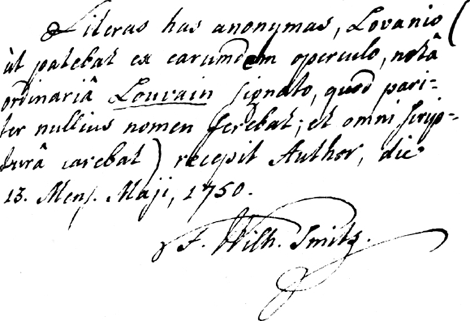 Literas has anonymas, Lovanio (
ùt patebat ex earumdem operculo, notâ
ordinariâ Louvain signato, quod pari-
ter nullius nomen ferebat; et omni scrip-
turâ carebat) recepit Author, die
13. Mens. Maji, 1750.
F. Wilh. Smitz.